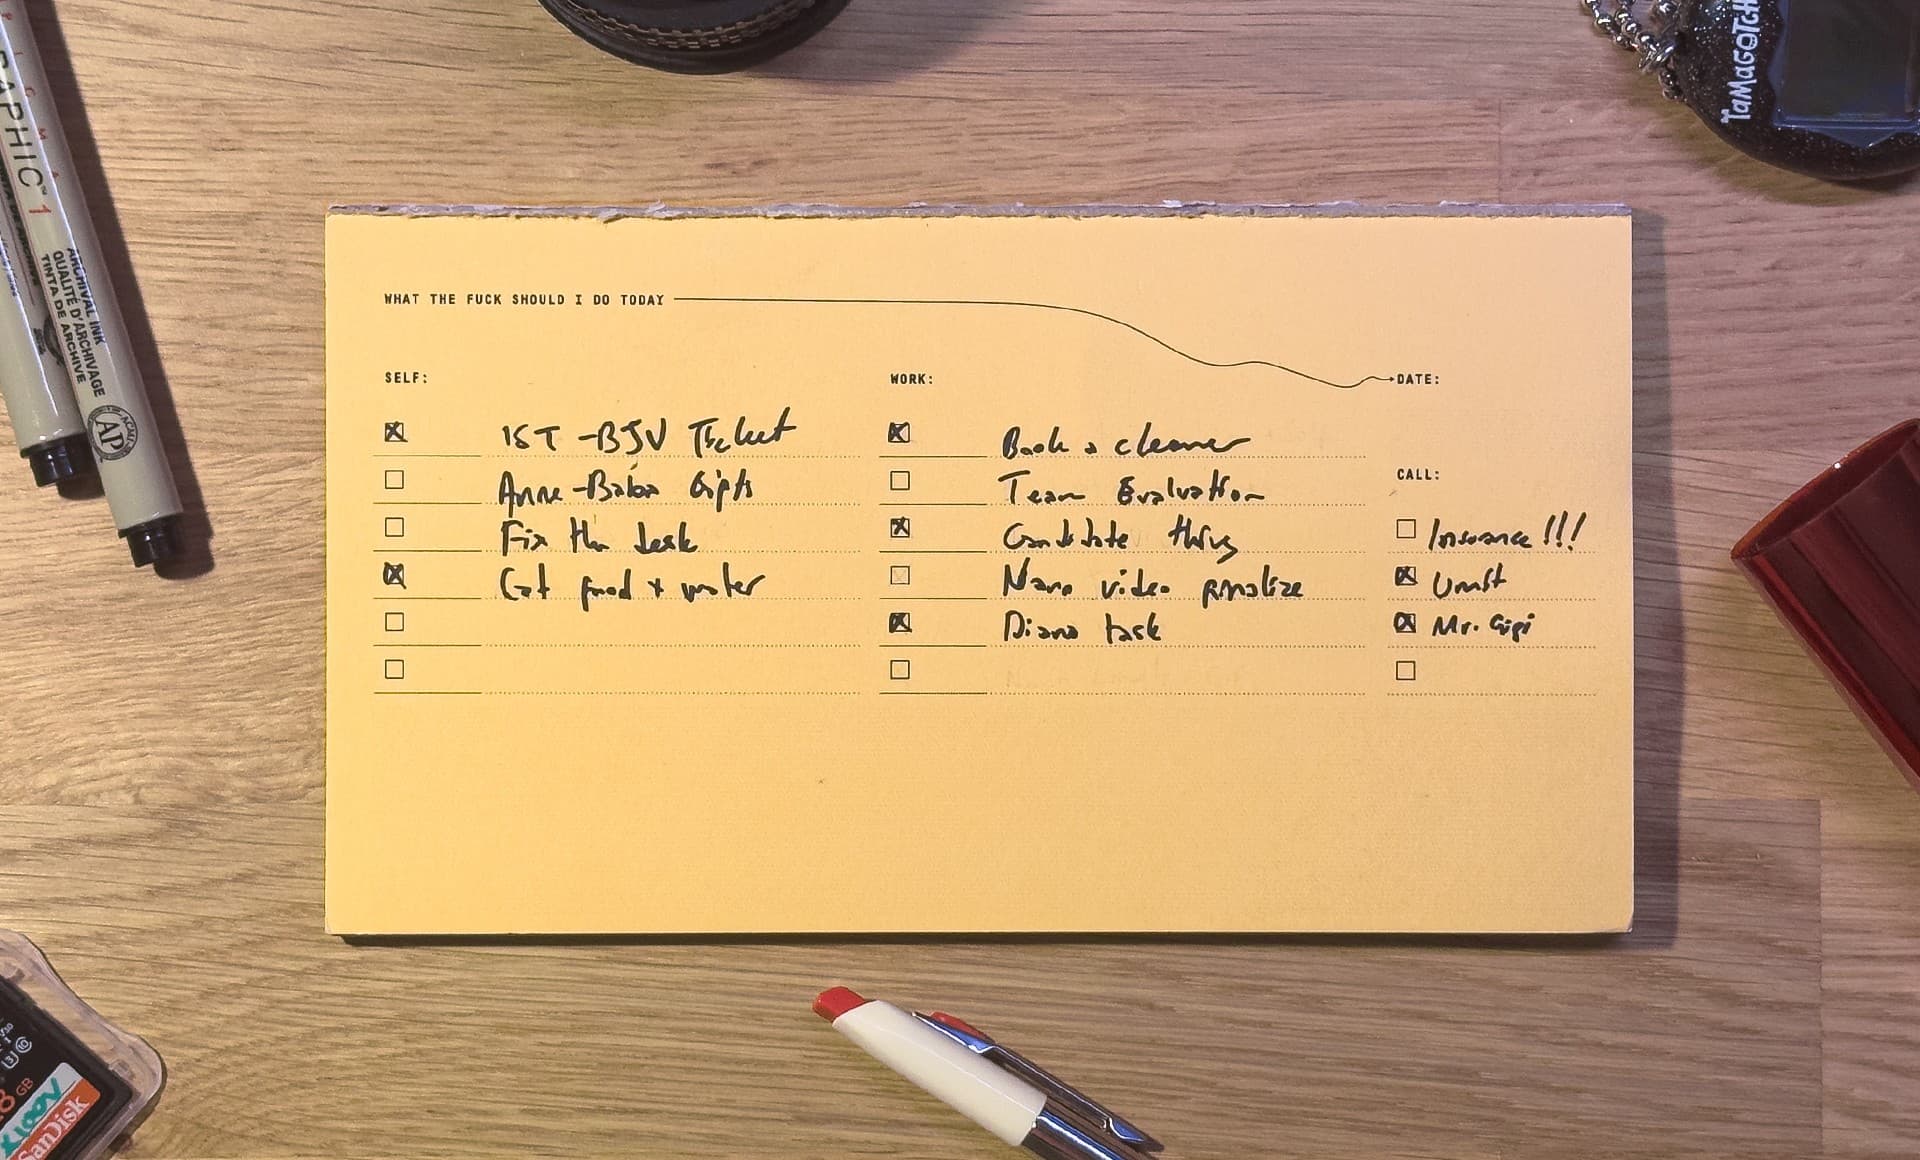 WHAT THE FUCK SHOULD I DO TODAY
SELF:
IST-BJV Ticket
Anne-Baba Gifts
Fix the desk
Cat food + water
WORK:
Book a cleaner
Team Evaluation
Candidate thing
Nano video finalize
Diana task
DATE:
CALL:
Insurance!!!
Umit
Mr. Gigi
GRAPHIC™ 1
ARCHIVAL INK
QUALITÉ D'ARCHIVAGE
TINTA DE ARCHIVE
ACMI
AP
TaMaGoTCH
GB
X100V
SanDisk